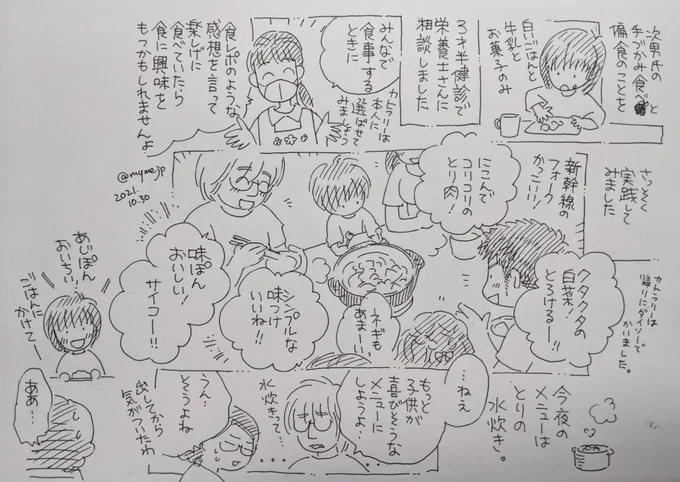 次男氏の
手づかみ食べと
偏食のことを
白いごはんと
牛乳と
お菓子のみ
3才半健診で
栄養士さんに
相談しました
みんなで
食事する
ときに
カトラリーは
本人に
選ばせて
みましょう
食レポのような
感想を言って
楽しげに
食べていたら
食に興味を
もつかもしれませんよ
@mymejp
2021.
10.30
さっそく
実践して
みました
新幹線の
フォーク
かっこいい!
カトラリーは
帰りにダイソーで
かいました。
にこんで
コリコリの
とり肉!
クタクタの
白菜!
とろけるー!!
ネギも
あまーい!
シンプルな
味つけ
いいね!!
味ぽん
おいしい!
サイコー!!
あじぽん
おいちい!
ごはんに
かけてー
今夜の
メニューは
とりの
水炊き。
…ねえ
もっと
子供が
喜びそうな
メニューに
しようよ…
水炊きって…
うん…
そうよね
出してから
気がついたわ
ああ…